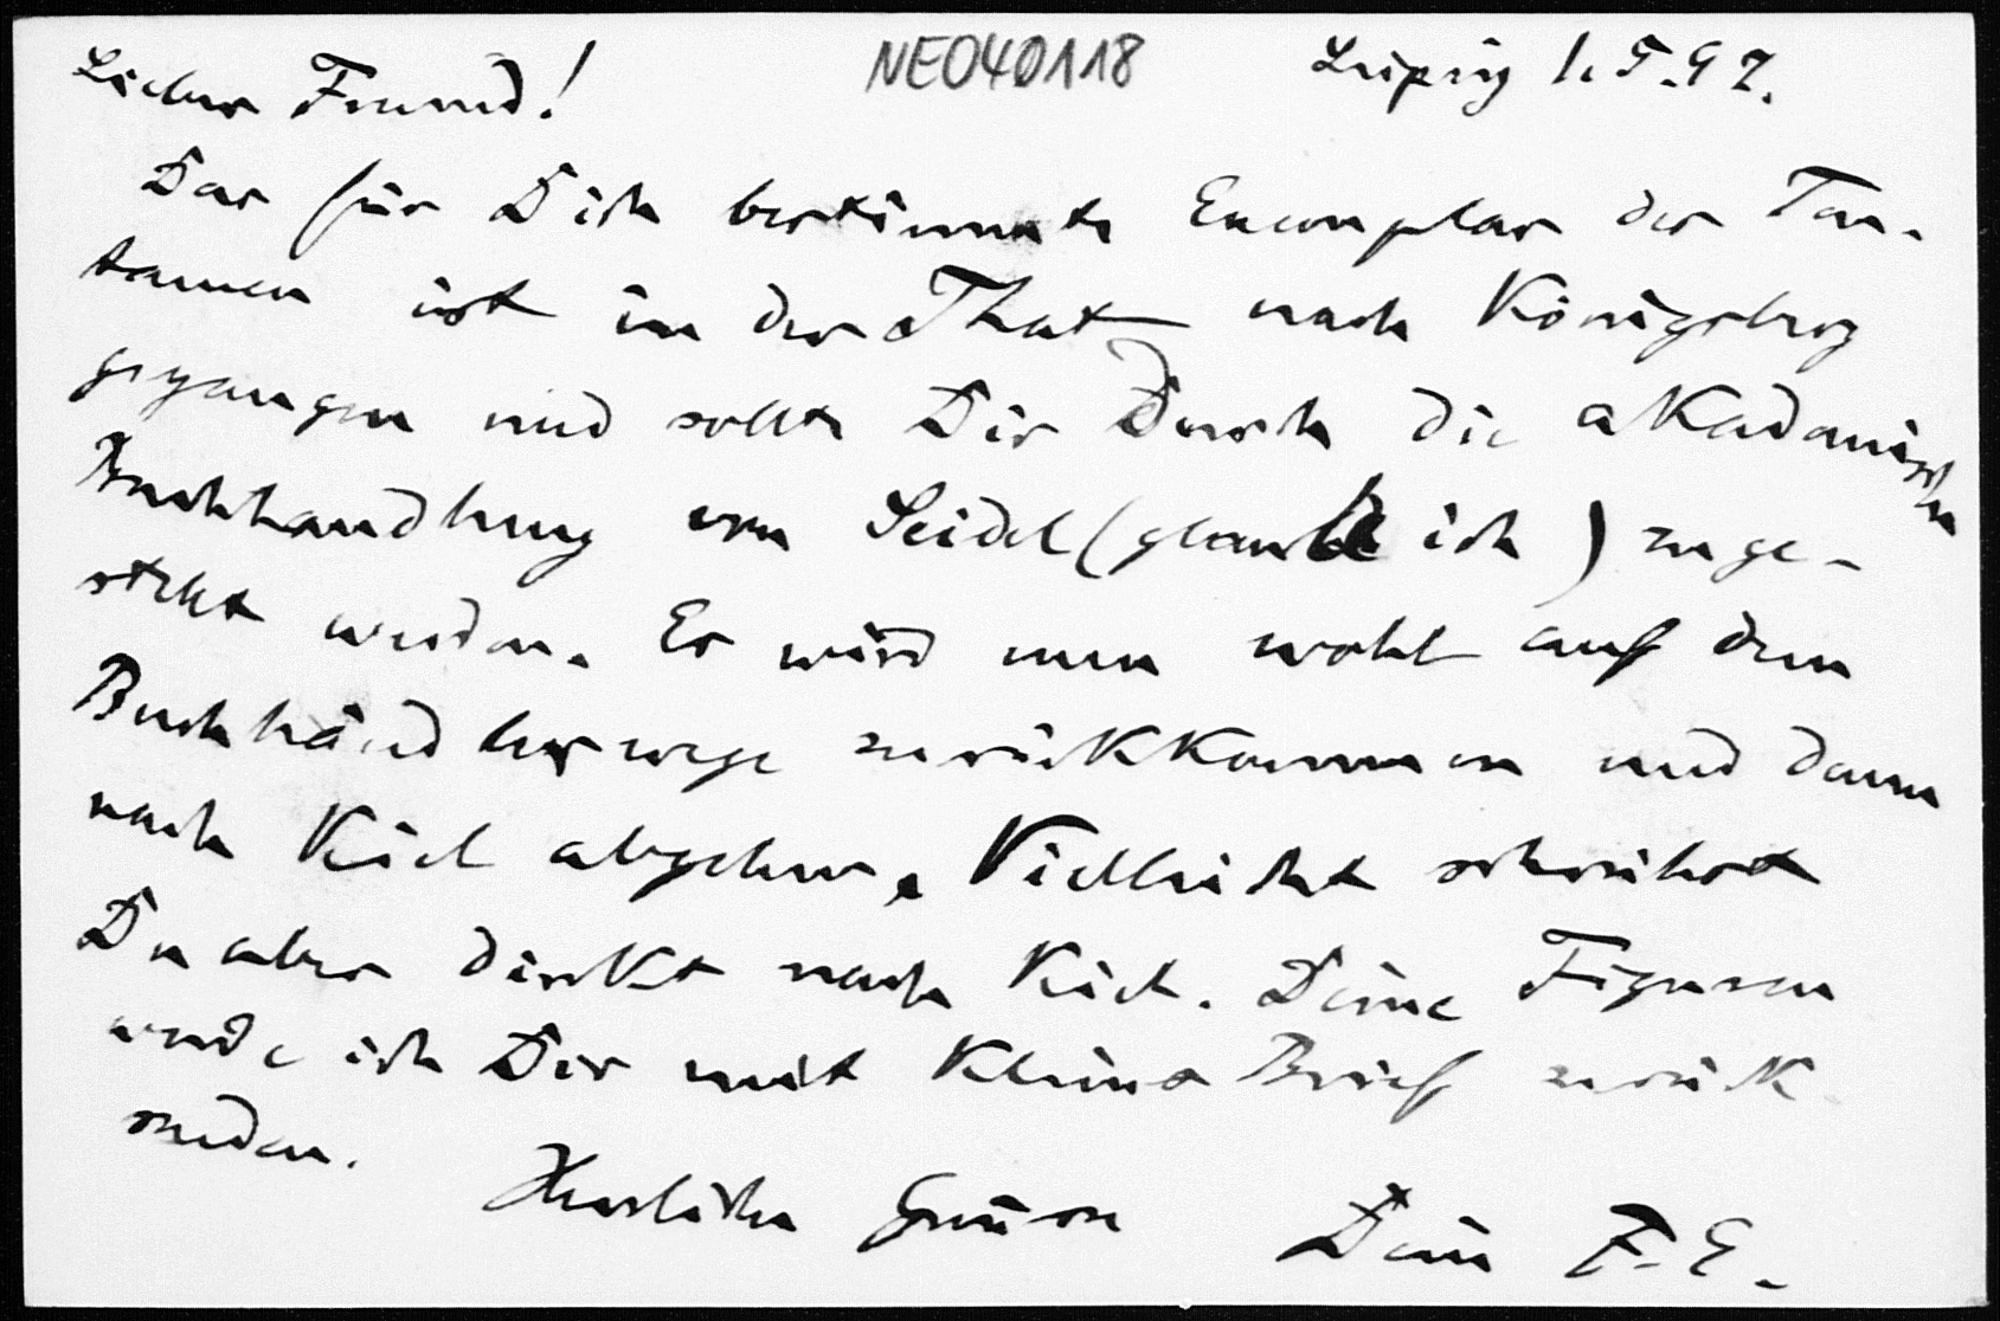 Lieber Freund!
NE040118
Leipzig 1. 5. 97.
Das für Dich bestimmte Exemplar der Ten-
tamen ist in der That nach Königsberg
gegangen und sollte Dir Durch die akademische
Buchhandlung von Seidel (glaube ich) zuge-
stellt werden. Es wird nun wohl auf dem
Buchhändlerwege zurückkommen und dann
nach Kiel abgehen. Vielleicht schreibst
Du aber direkt nach Kiel. Deine Figuren
werde ich Dir mit kleinem Brief zurück
senden.
Herzliche Grüsse
Dein F. E.